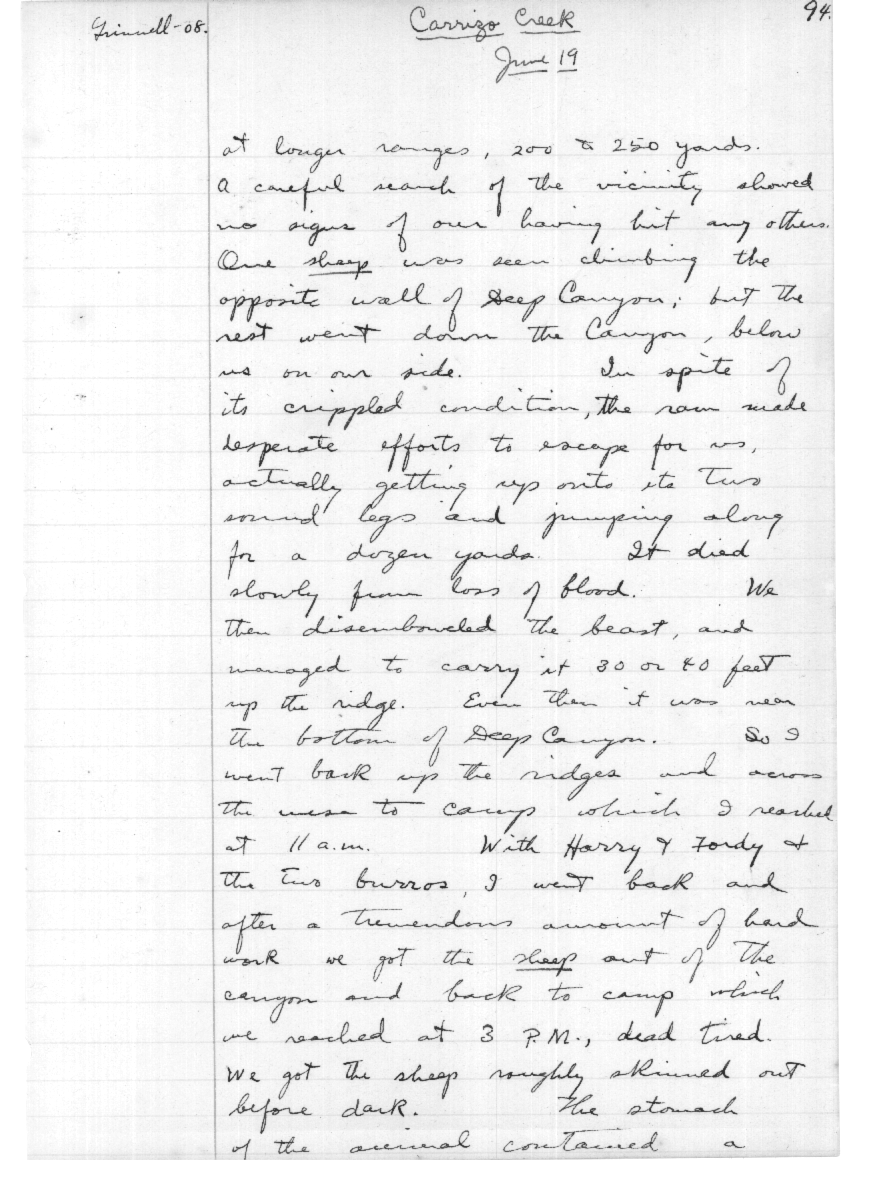 Grinnell-08.
Carrizo Creek
94.
June 19
at longer ranges, 200 to 250 yards.
A careful search of the vicinity showed
no signs of our having hit any others.
One sheep was seen climbing the
opposite wall of Deep Canyon; but the
rest went down the Canyon, below
us on our side. In spite of
its crippled condition, the ram made
desperate efforts to escape for us,
actually getting up onto its two
sound legs and jumping along
for a dozen yards. It died
slowly from loss of blood. We
then disemboweled the beast, and
managed to carry it 30 or 40 feet
up the ridge. Even then it was near
the bottom of Deep Canyon. So I
went back up the ridges and across
the mesa to camp which I reached
at 11 a.m. With Harry & Fordy &
the two burros, I went back and
after a tremendous amount of hard
work we got the sheep out of the
canyon and back to camp which
we reached at 3 P.M., dead tired.
We got the sheep roughly skinned out
before dark. The stomach
of the animal contained a